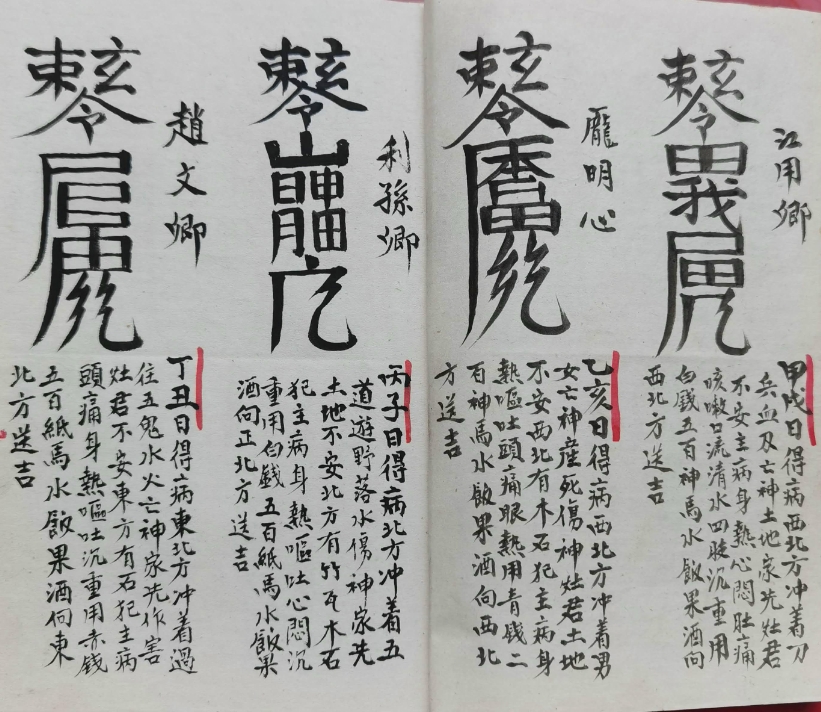 江用卿
玄敕令
甲戌日得病西北方冲着刀
兵血及亡神土地家先灶君
不安主病身熱心悶肚痛
咳嗽口流清水四肢沉重用
白錢五百神馬水飯果酒向
西北方送吉
龐明心
玄敕令
乙亥日得病西北方冲着男
女亡神產死傷神灶君土地
不安西北有木石犯主病身
熱嘔吐頭痛眼熱用青錢二
百神馬水飯果酒向西北
方送吉
利孫卿
玄敕令
丙子日得病北方冲着五
道遊野落水傷神家先
土地不安北方有竹瓦木石
犯主病身熱嘔吐心悶沉
重用白錢五百紙馬水飯果
酒向正北方送吉
趙文卿
玄敕令
丁丑日得病東北方冲着過
往五鬼水火亡神家先作害
灶君不安東方有石犯主病
頭痛身熱嘔吐沉重用赤錢
五百紙馬水飯果酒向東
北方送吉